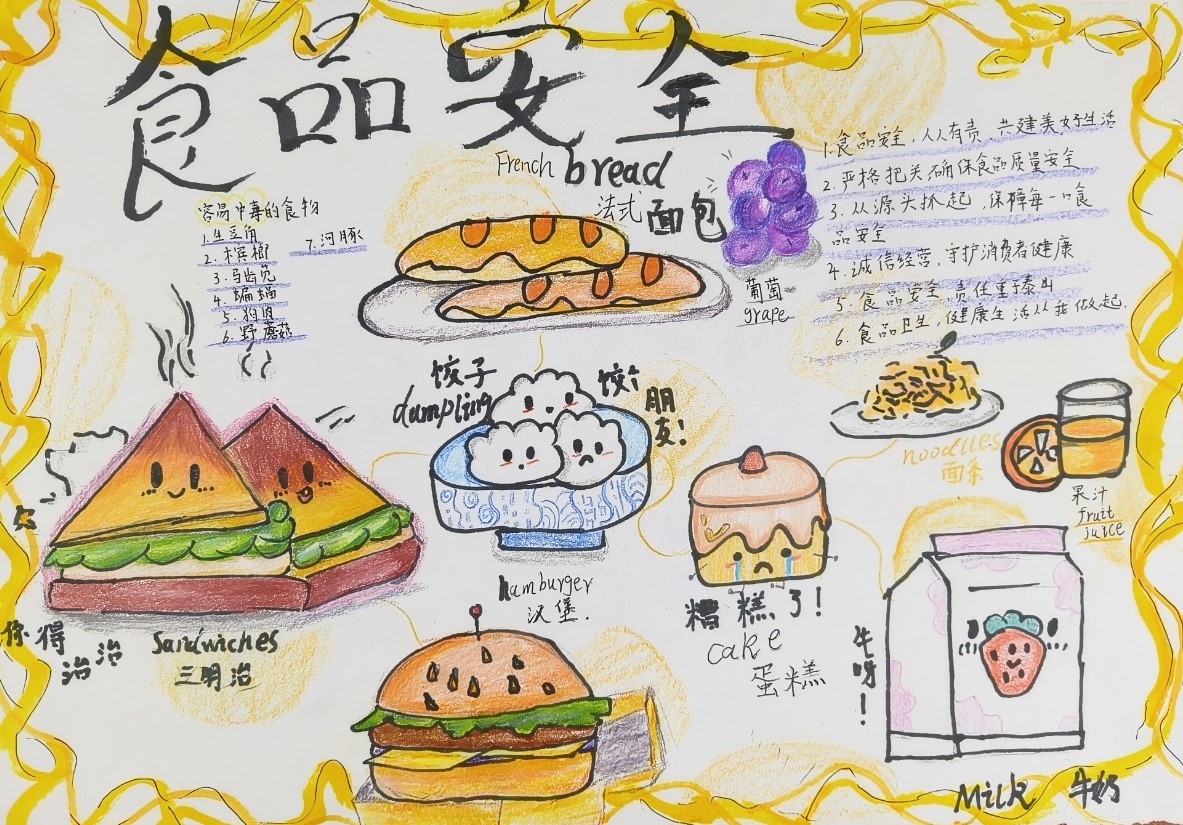 食品安全
French bread
法式 面包
葡萄
grape
容易中毒的食物
1.生豆角
2.槟榔
3.马齿苋
4.蝙蝠
5.狗肉
6.野蘑菇
7.河豚
1.食品安全,人人有责、共建美好生活
2.严格把关确保食品质量安全
3.从源头抓起,保障每一口食
品安全
4.诚信经营,守护消费者健康
5.食品安全,责任重于泰山
6.食品卫生,健康生活从我做起.
饺子
dumpling
饺个
朋
友!
noodles
面条
果汁
fruit
juice
hamburger
汉堡.
糟糕了!
cake
蛋糕
你得
治治
Sandwiches
三明治
牛呀!
Milk 牛奶